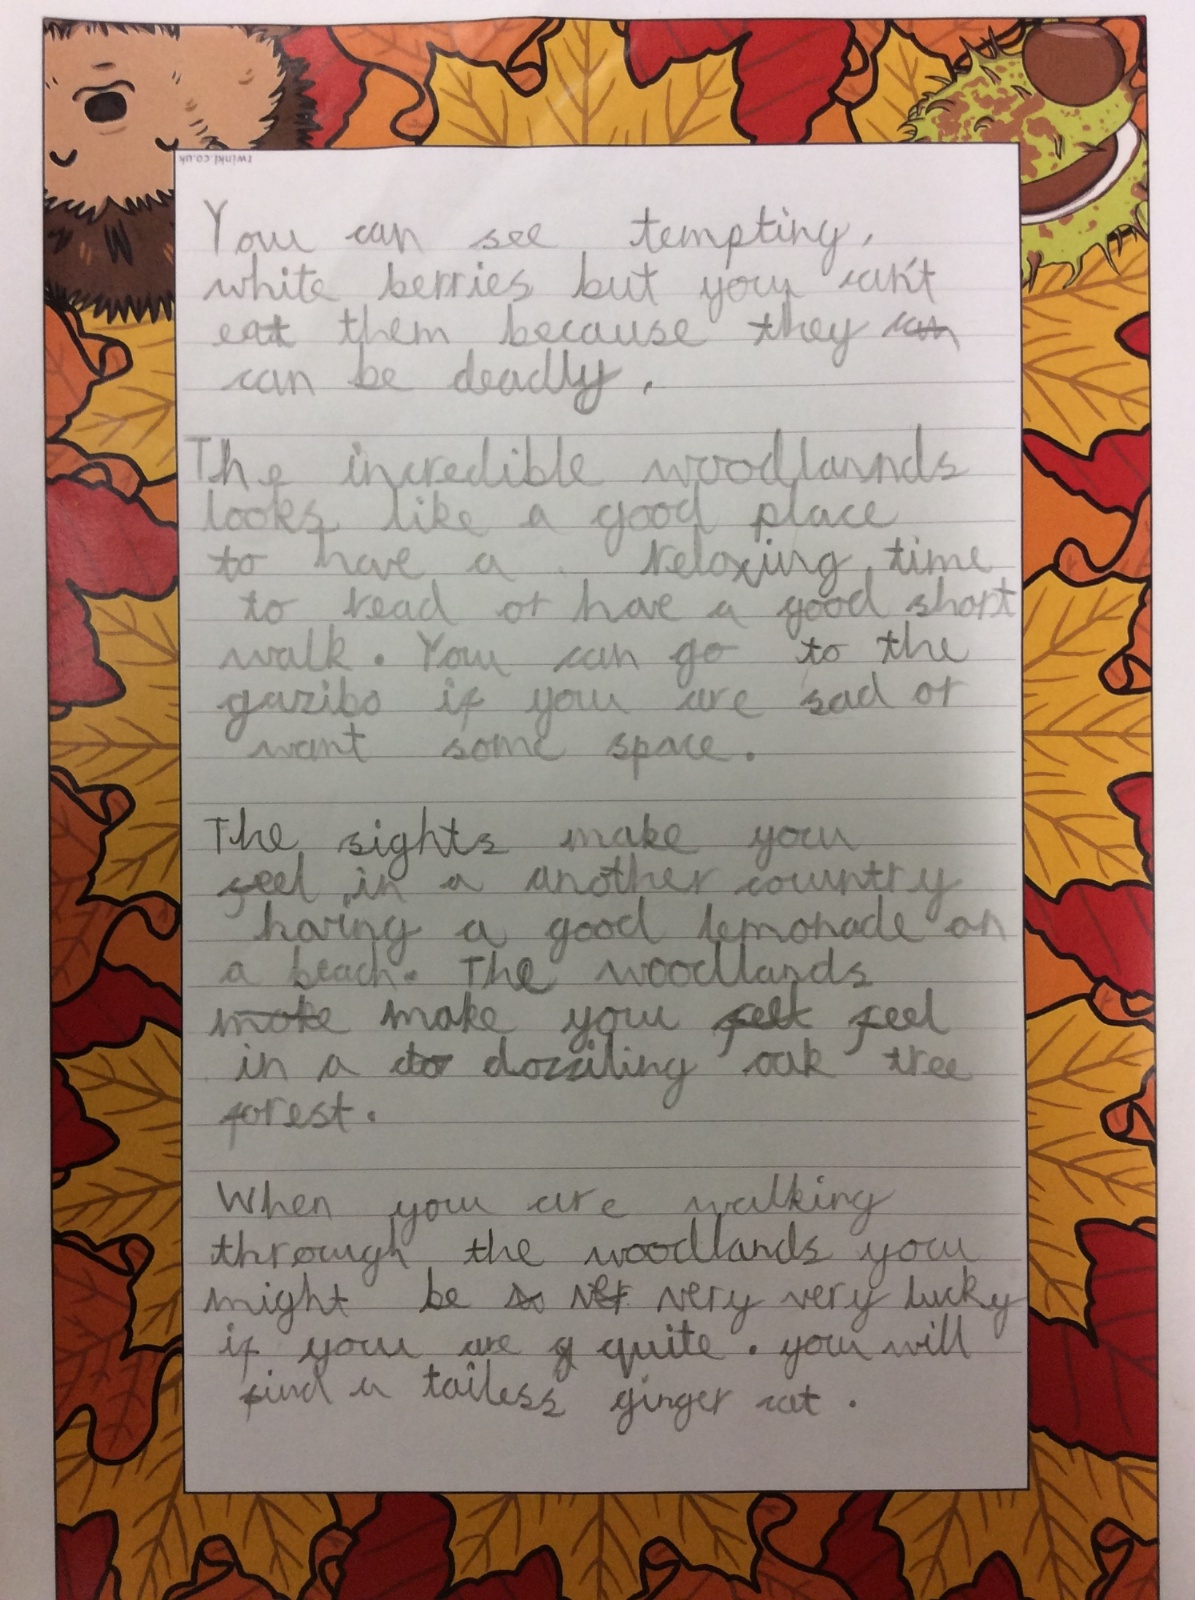 twinkl.co.uk
You can see tempting,
white berries but you can't
eat them because they can
can be deadly.
The incredible woodlannds
looks like a good place
to have a relaxing time
to read or have a good short
walk. You can go to the
gazibo if you are sad or
want some space.
The sights make you
feel in a another country
having a good lemonade on
a beach. The woodlands
make make you felt feel
in a do dozziling oak tree
forest.
When you are walking
through the woodlands you
might be so ver very very lucky
if you are q quite. you will
find a tailess ginger cat.